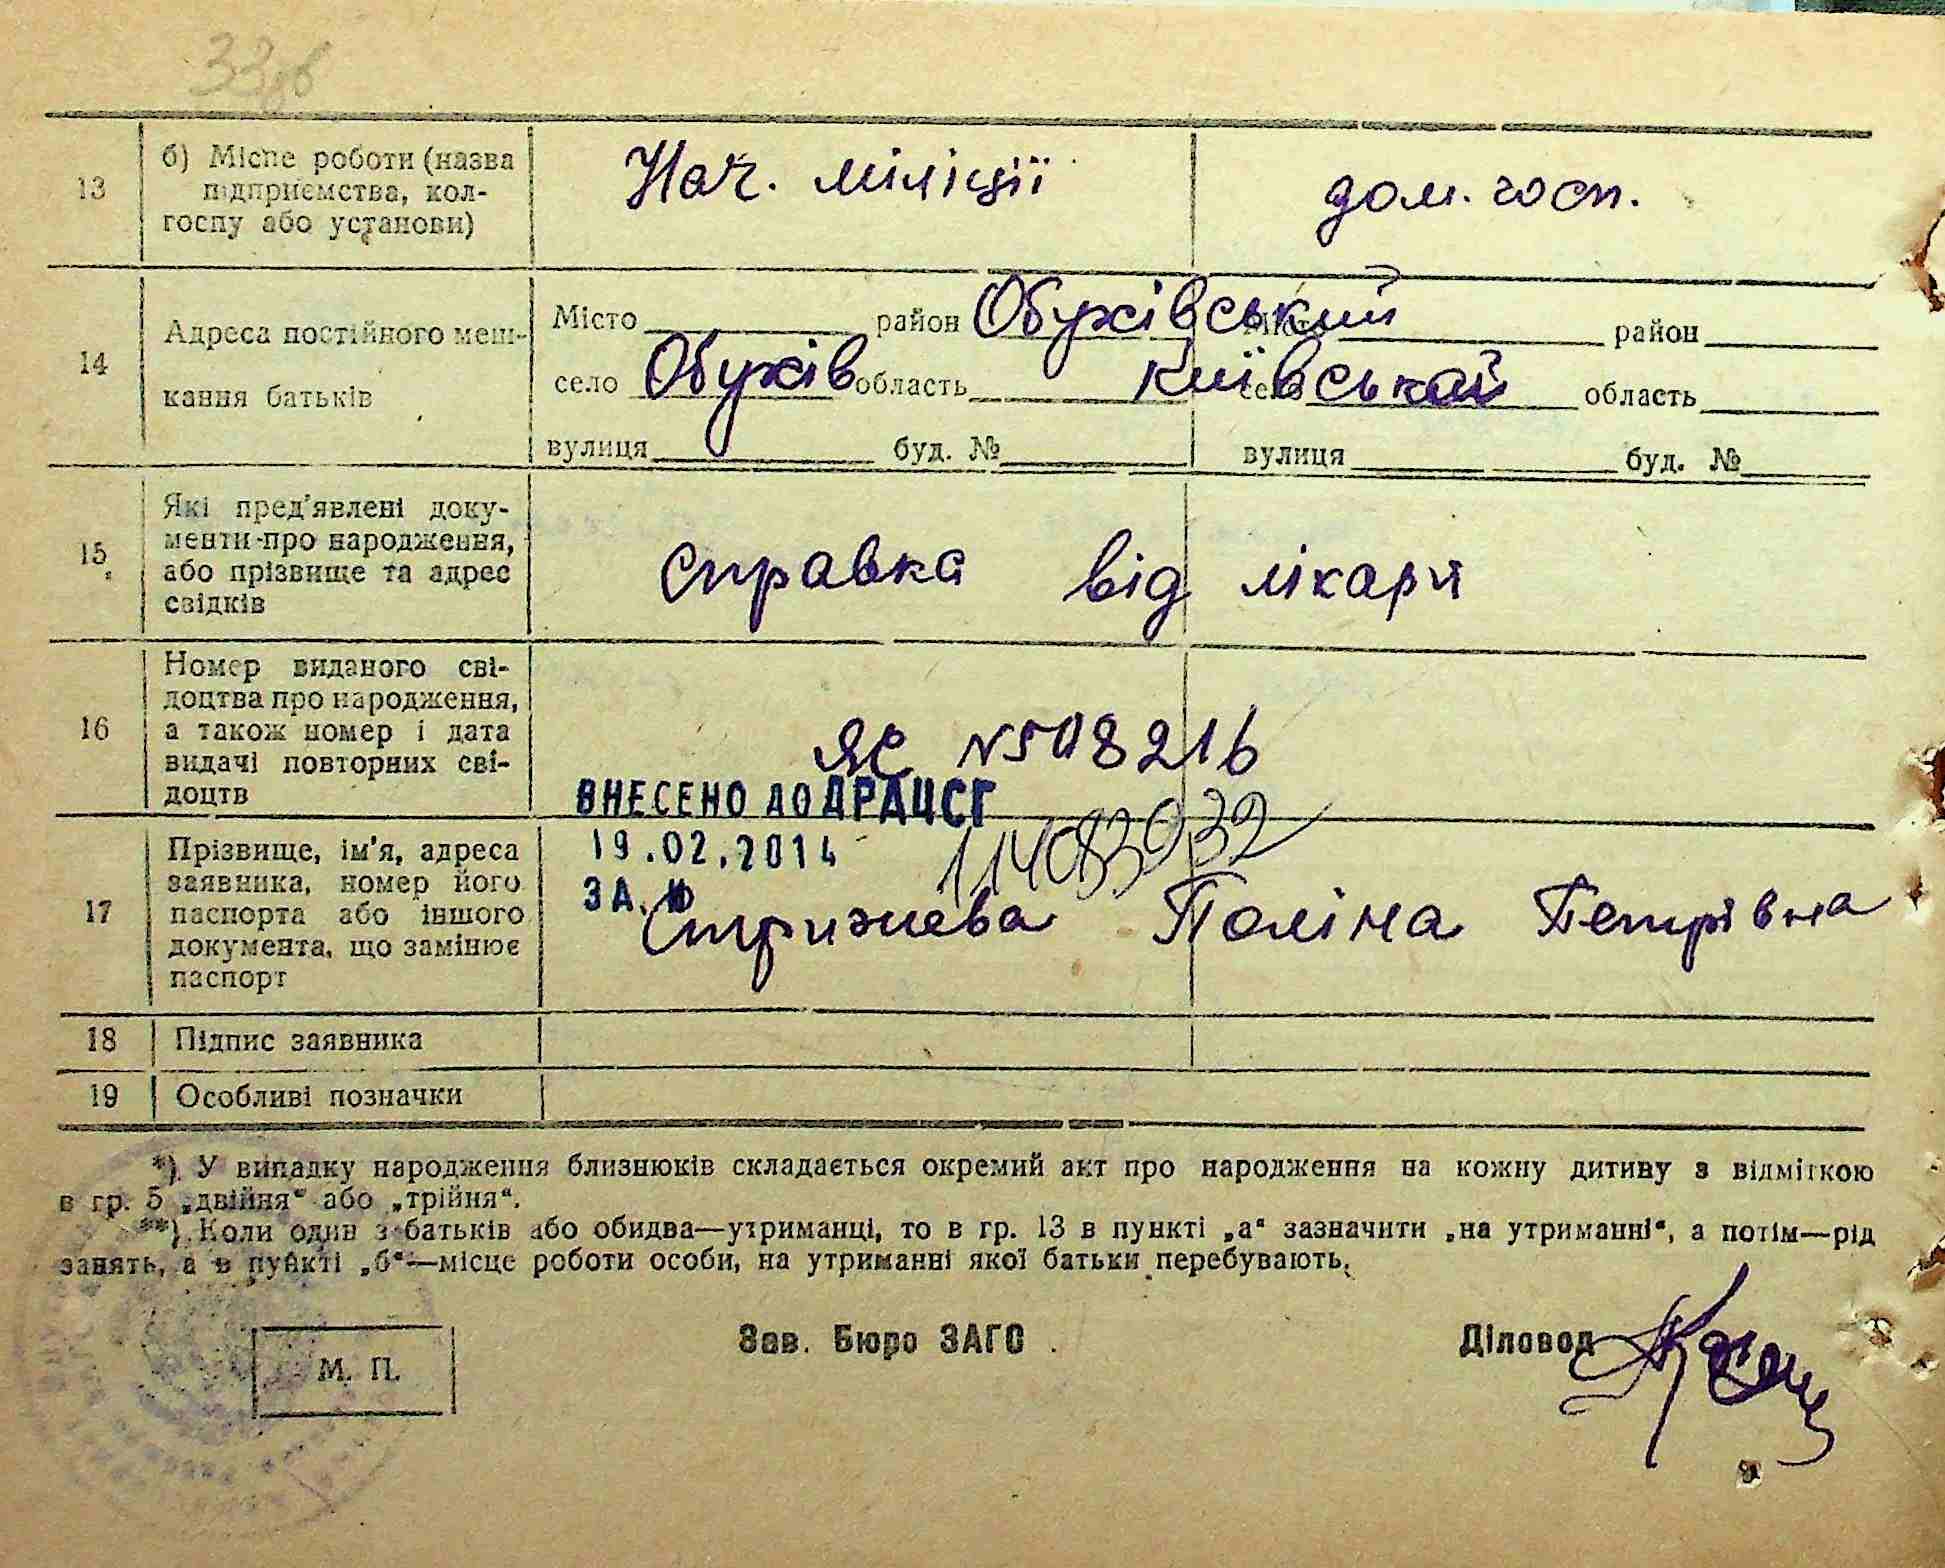 33зв
13 б) Місце роботи (назва підприємства, колгоспу або установи) Нач. міліції дом. госп.
14 Адреса постійного мешкання батьків
Місто район Обухівський Місто район
село Обухів область Київській село область
вулиця буд. № вулиця буд. №
15 Які пред'явлені документи про народження, або прізвище та адрес свідків справка від лікаря
16 Номер виданого свідоцтва про народження, а також номер і дата видачі повторних свідоцтв ЯЄ N508216
ВНЕСЕНО ДО ДРАЦСГ
19.02.2014 114083932
ЗА №
17 Прізвище, ім'я, адреса заявника, номер його паспорта або іншого документа, що замінює паспорт Стрижева Поліна Петрівна
18 Підпис заявника
19 Особливі позначки
*) У випадку народження близнюків складається окремий акт про народження на кожну дитину з відміткою
в гр. 5 „двійня“ або „трійня“.
**) Коли один з батьків або обидва—утриманці, то в гр. 13 в пункті „а“ зазначити „на утриманні“, а потім—рід
занять, а в пункті „б“—місце роботи особи, на утриманні якої батьки перебувають.
Зав. Бюро ЗАГС Діловод
М. П.